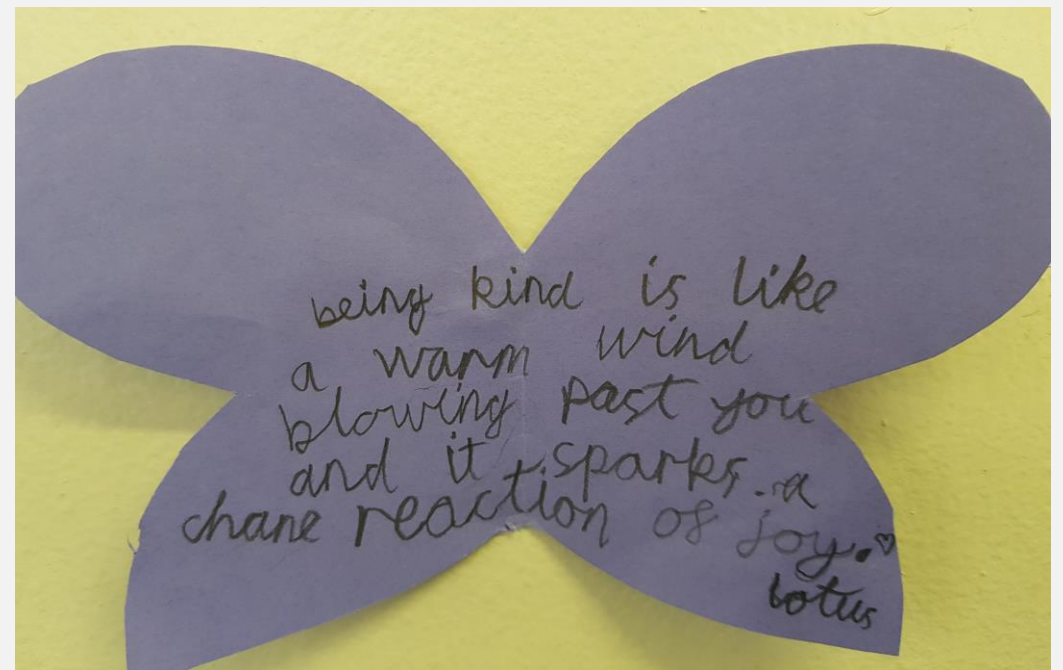 being kind is like
a warm wind
blowing past you
and it sparks a
chane reaction of joy.♡
lotus